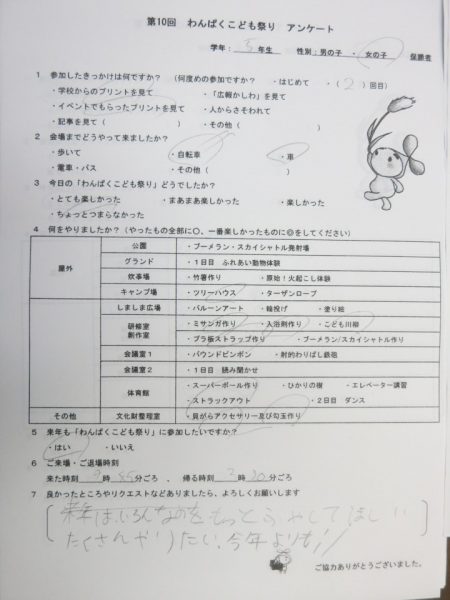 第10回　わんぱくこども祭り　アンケート
学年：　5　年生　　性別：男の子　・　女の子　　保護者
1　参加したきっかけは何ですか？　（何度めの参加ですか？　・はじめて　・（2）回目）
・学校からのプリントを見て　　・「広報かしわ」を見て
・イベントでもらったプリントを見て　　・人からさそわれて
・記事を見て（　　　）　　・その他（　　　）
2　会場までどうやって来ましたか？
・歩いて　　・自転車　　・車
・電車・バス　　・その他（　　　）
3　今日の「わんぱくこども祭り」どうでしたか？
・とても楽しかった　　・まあまあ楽しかった　　・楽しかった
・ちょっとつまらなかった
4　何をやりましたか？（やったもの全部に〇、一番楽しかったものに◎をしてください）
屋外　公園　・ブーメラン・スカイシャトル発射場
グランド　・1日目　ふれあい動物体験
炊事場　・竹箸作り　・原始！火起こし体験
キャンプ場　・ツリーハウス　・ターザンロープ
しましま広場　・バルーンアート　・輪投げ　・塗り絵
研修室　・ミサンガ作り　・入浴剤作り　・こども川柳
創作室　・プラ板ストラップ作り　・ブーメラン/スカイシャトル作り
会議室1　・パウンドピンポン　・射的わりばし鉄砲
会議室2　・1日目　読み聞かせ
体育館　・スーパーボール作り　・ひかりの樹　・エレベーター講習
・ストラックアウト　・2日目　ダンス
その他　文化財整理室　・貝がらアクセサリー及び勾玉作り
5　来年も「わんぱくこども祭り」に参加したいですか？
・はい　　・いいえ
6　ご来場・ご退場時刻
来た時刻　9　時　45　分ごろ　、　帰る時刻　2　時　30　分ごろ
7　良かったところやリクエストなどありましたら、よろしくお願いします
来年はいろんなのをもっとふやしてほしい
たくさんやりたい、今年よりも!!
ご協力ありがとうございました。